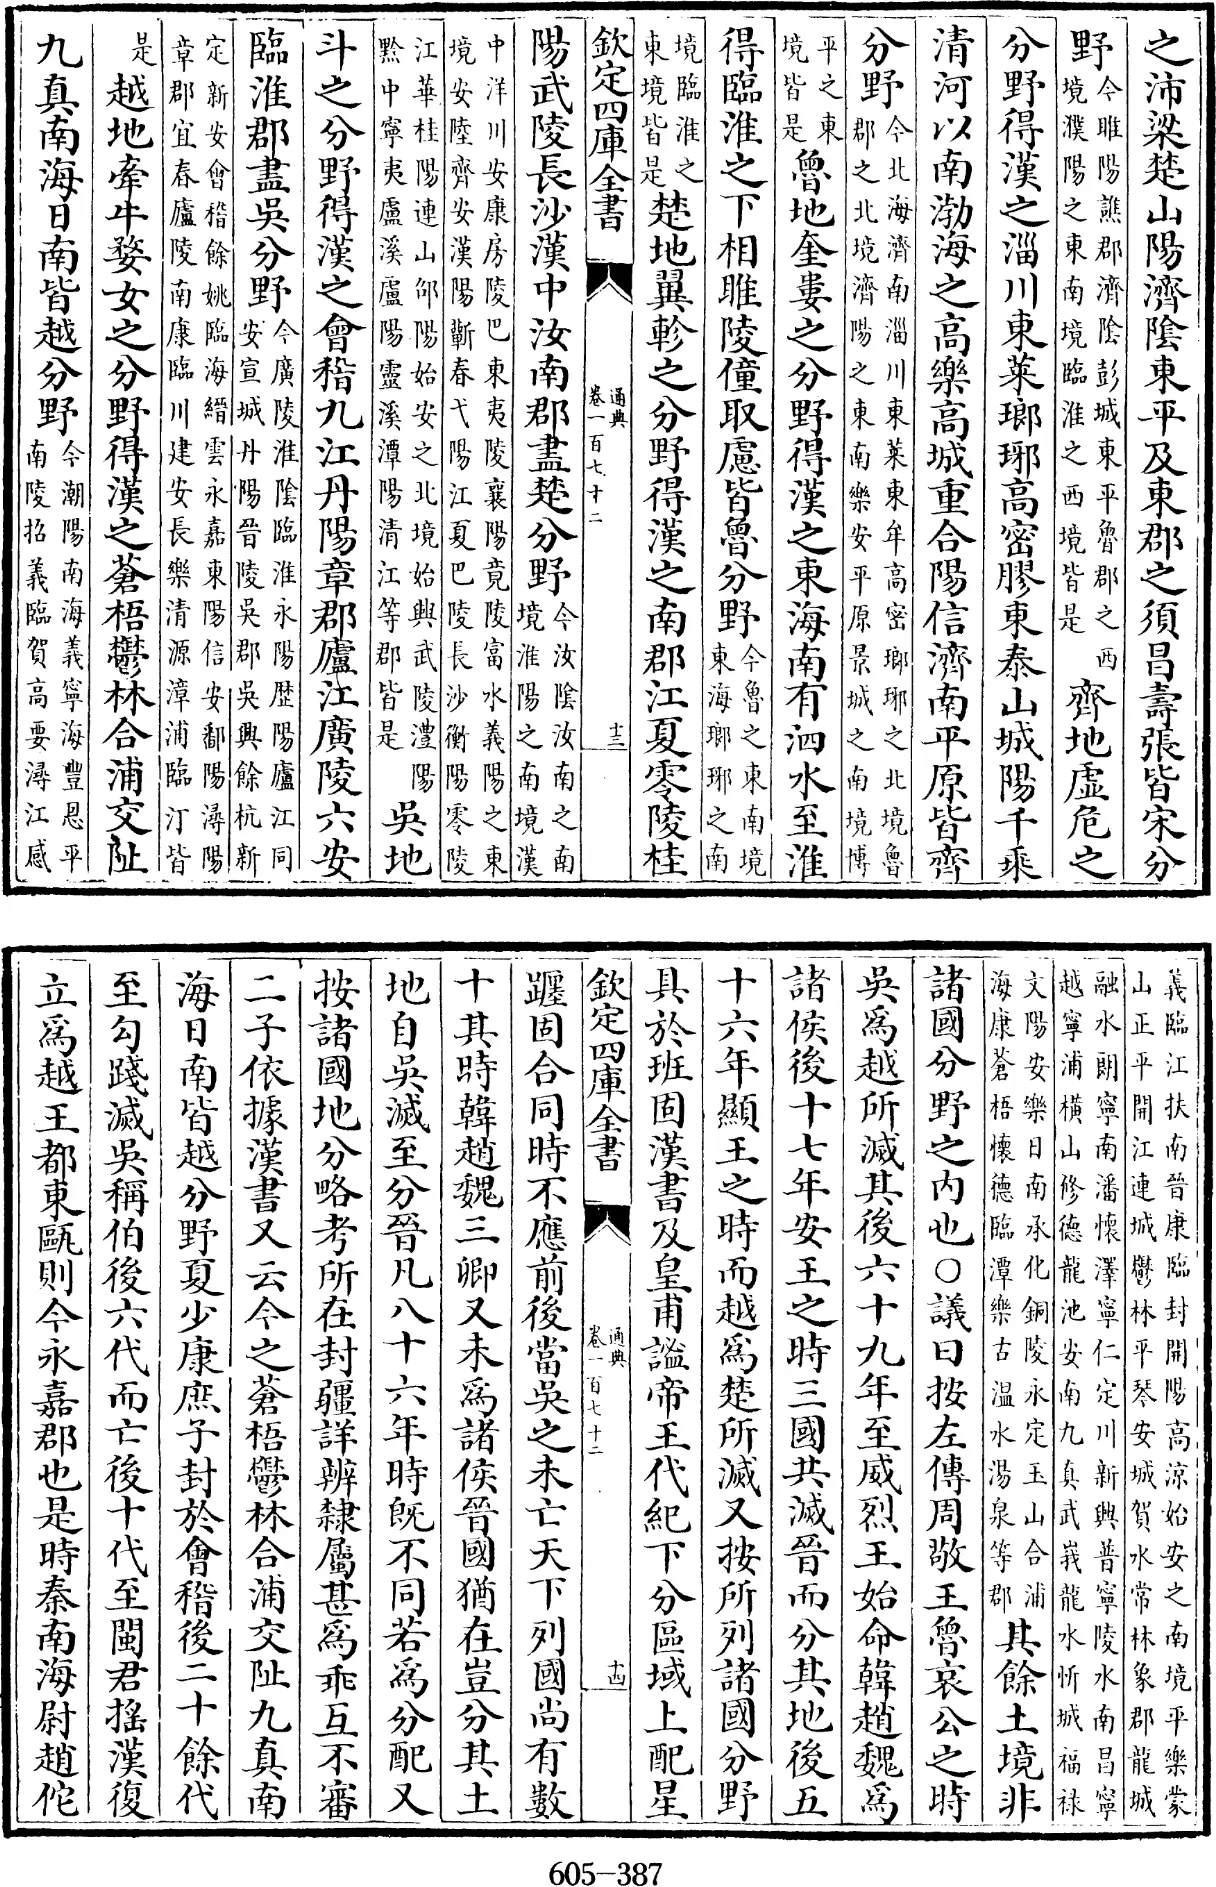 之沛梁楚山陽濟陰東平及東郡之須昌壽張皆宋分
野今睢陽譙郡濟陰彭城東平魯郡之西境濮陽之東南境臨淮之西境皆是齊地虛危之
分野得漢之淄川東萊瑯琊高密膠東泰山城陽千乘
清河以南渤海之高樂高城重合陽信濟南平原皆齊
分野今北海濟南淄川東萊東牟高密瑯琊之北境魯郡之北境濟陽之東南樂安平原景城之南境博
平之東境皆是魯地奎婁之分野得漢之東海南有泗水至淮
得臨淮之下相睢陵僮取慮皆魯分野今魯之東南境東海瑯琊之南
境臨淮之東境皆是楚地翼軫之分野得漢之南郡江夏零陵桂
欽定四庫全書 通典 卷一百七十二 十三
陽武陵長沙漢中汝南郡盡楚分野今汝陰汝南之南境淮陽之南境漢
中洋川安康房陵巴東夷陵襄陽竟陵富水義陽之東境安陸齊安漢陽蘄春弋陽江夏巴陵長沙衡陽零陵
江華桂陽連山邵陽始安之北境始興武陵澧陽黔中寧夷盧溪盧陽靈溪潭陽清江等郡皆是吳地
斗之分野得漢之會稽九江丹陽章郡廬江廣陵六安
臨淮郡盡吳分野今廣陵淮陰臨淮永陽歴陽廬江同安宣城丹陽晉陵吳郡吳興餘杭新
定新安會稽餘姚臨海縉雲永嘉東陽信安鄱陽潯陽章郡宜春廬陵南康臨川建安長樂清源漳浦臨汀皆
是越地牽牛婺女之分野得漢之蒼梧鬱林合浦交阯
九真南海日南皆越分野今潮陽南海義寧海豐恩平南陵招義臨賀高要潯江感
義臨江扶南晉康臨封開陽高凉始安之南境平樂蒙山正平開江連城鬱林平琴安城賀水常林象郡龍城
融水朗寧南潘懷澤寧仁定川新興普寧陵水南昌寧越寧浦橫山修德龍池安南九真武峩龍水忻城福祿
文陽安樂日南承化銅陵永定玉山合浦海康蒼梧懷德臨潭樂古溫水湯泉等郡其餘土境非
諸國分野之内也○議曰按左傳周敬王魯哀公之時
吳爲越所滅其後六十九年至威烈王始命韓趙魏爲
諸侯後十七年安王之時三國共滅晉而分其地後五
十六年顯王之時而越爲楚所滅又按所列諸國分野
具於班固漢書及皇甫謐帝王代紀下分區域上配星
欽定四庫全書 通典 卷一百七十二 十四
躔固合同時不應前後當吳之未亡天下列國尚有數
十其時韓趙魏三卿又未爲諸侯晉國猶在豈分其土
地自吳滅至分晉凡八十六年時旣不同若爲分配又
按諸國地分略考所在封疆詳辨隸屬甚爲乖互不審
二子依據漢書又云今之蒼梧鬱林合浦交阯九真南
海日南皆越分野夏少康庶子封於會稽後二十餘代
至勾踐滅吳稱伯後六代而亡後十代至閩君搖漢復
立爲越王都東甌則今永嘉郡也是時秦南海尉趙佗
605-387